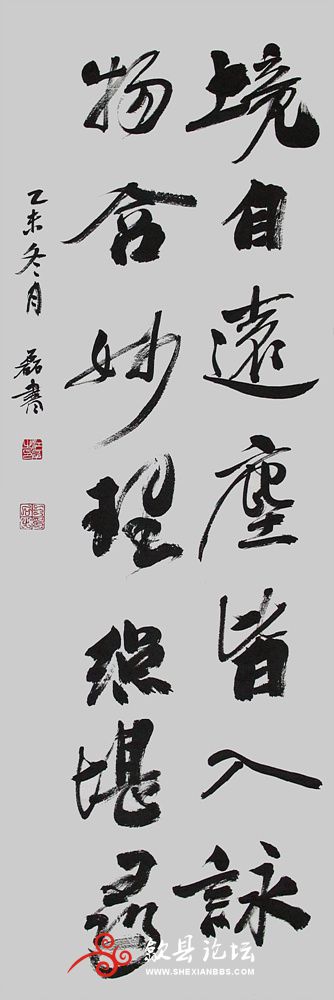 境自遠塵皆入詠
物含妙理總堪尋
乙未冬月 磊書
歙县论坛
WWW.SHEXIANBBS.COM